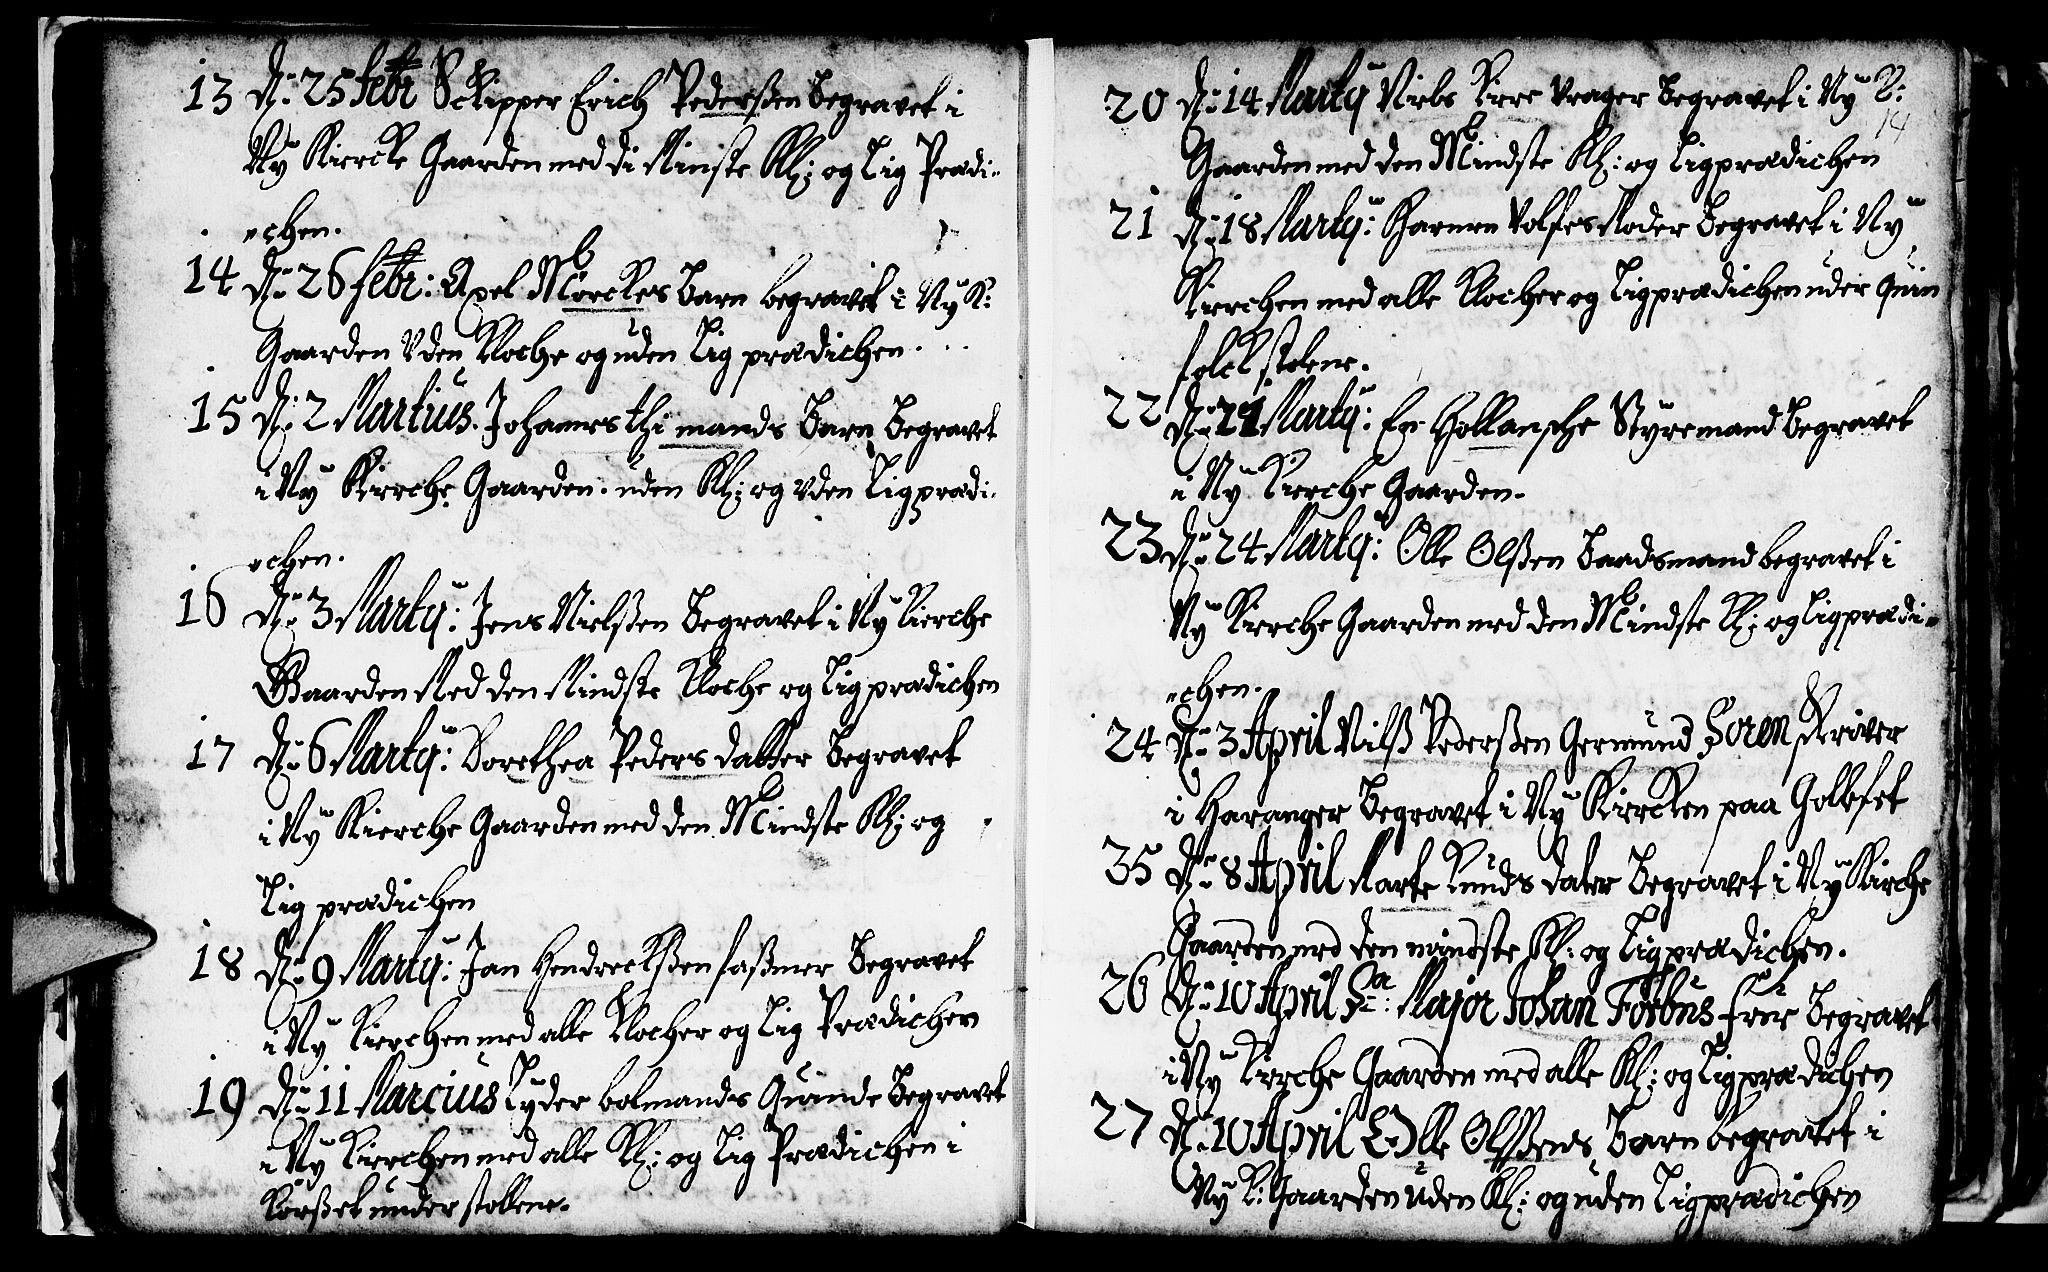 13 d: 25 febr Schipper Erich Pederßen Begravet i
Ny Kiercke Gaarden med di Minste Kl: og Lig Prædi-
-chen.
14 d: 26 febr: Axel Morckes Barn begravet i Ny K:
Gaarden Uden Kloche og uden Lig prædichen.
15 d: 2 Martius. Johannes thi mands Barn Begravet
i Ny Kierche Gaarden. uden Kl: og uden Ligprædi-
-chen.
16 d: 3 Marty: Jens Nielßen Begravet i Ny Kierche
Gaarden Med den Mindste Kloche og Ligprædichen
17 d: 6 Marty: Dorethea Peders datter Begravet
i Ny Kierche Gaarden med den Mindste Kl: og
Lig prædichen
18 d: 9 Marty: Jan Hendreckßen faßmer Begravet
i Ny Kierchen med alle Klocher og Lig Prædichen
19 d: 11 Marcius Lyder bolmands Quinde Begravet
i Ny Kierchen med alle Kl: og Lig Prædichen i
Korßet under stollene.
20 d: 14 Marty Niels Vrager Begravet i Ny K:
14
Gaarden med den Mindste Kl: og Ligprædichen
21 d: 18 Marty: Harmen Volfes Moder Begravet i Ny
Kierchen med alle Klocher og Ligprædichen uder Quin
folck stolene.
22 d: 21 Marty: En Hollansche Styremand Begravet
i Ny Kierche Gaarden.
23 d: 24 Marty: Olle Olßen Baadsmand begravet i
Ny Kierche Gaarden med den Mindste Kl: og Ligprædi-
-chen.
24 d: 3 April Nilß Pederßen Germund Soren Skriver
i Haranger Begravet i Ny Kiercken paa Golfvet
35 d: 8 April Marte Knuds dater Begravet i Ny Kirche
Gaarden med den mindste Kl: og Ligprædichen.
26 d: 10 April Sa: Major Johan Forbus Frue Begravet
i Ny Kierche Gaarden med alle Kl: og Ligprædichen
27 d: 10 April Olle Olßens Barn begravet i
Ny K: Gaarden uden Kl: og uden Ligprædichen